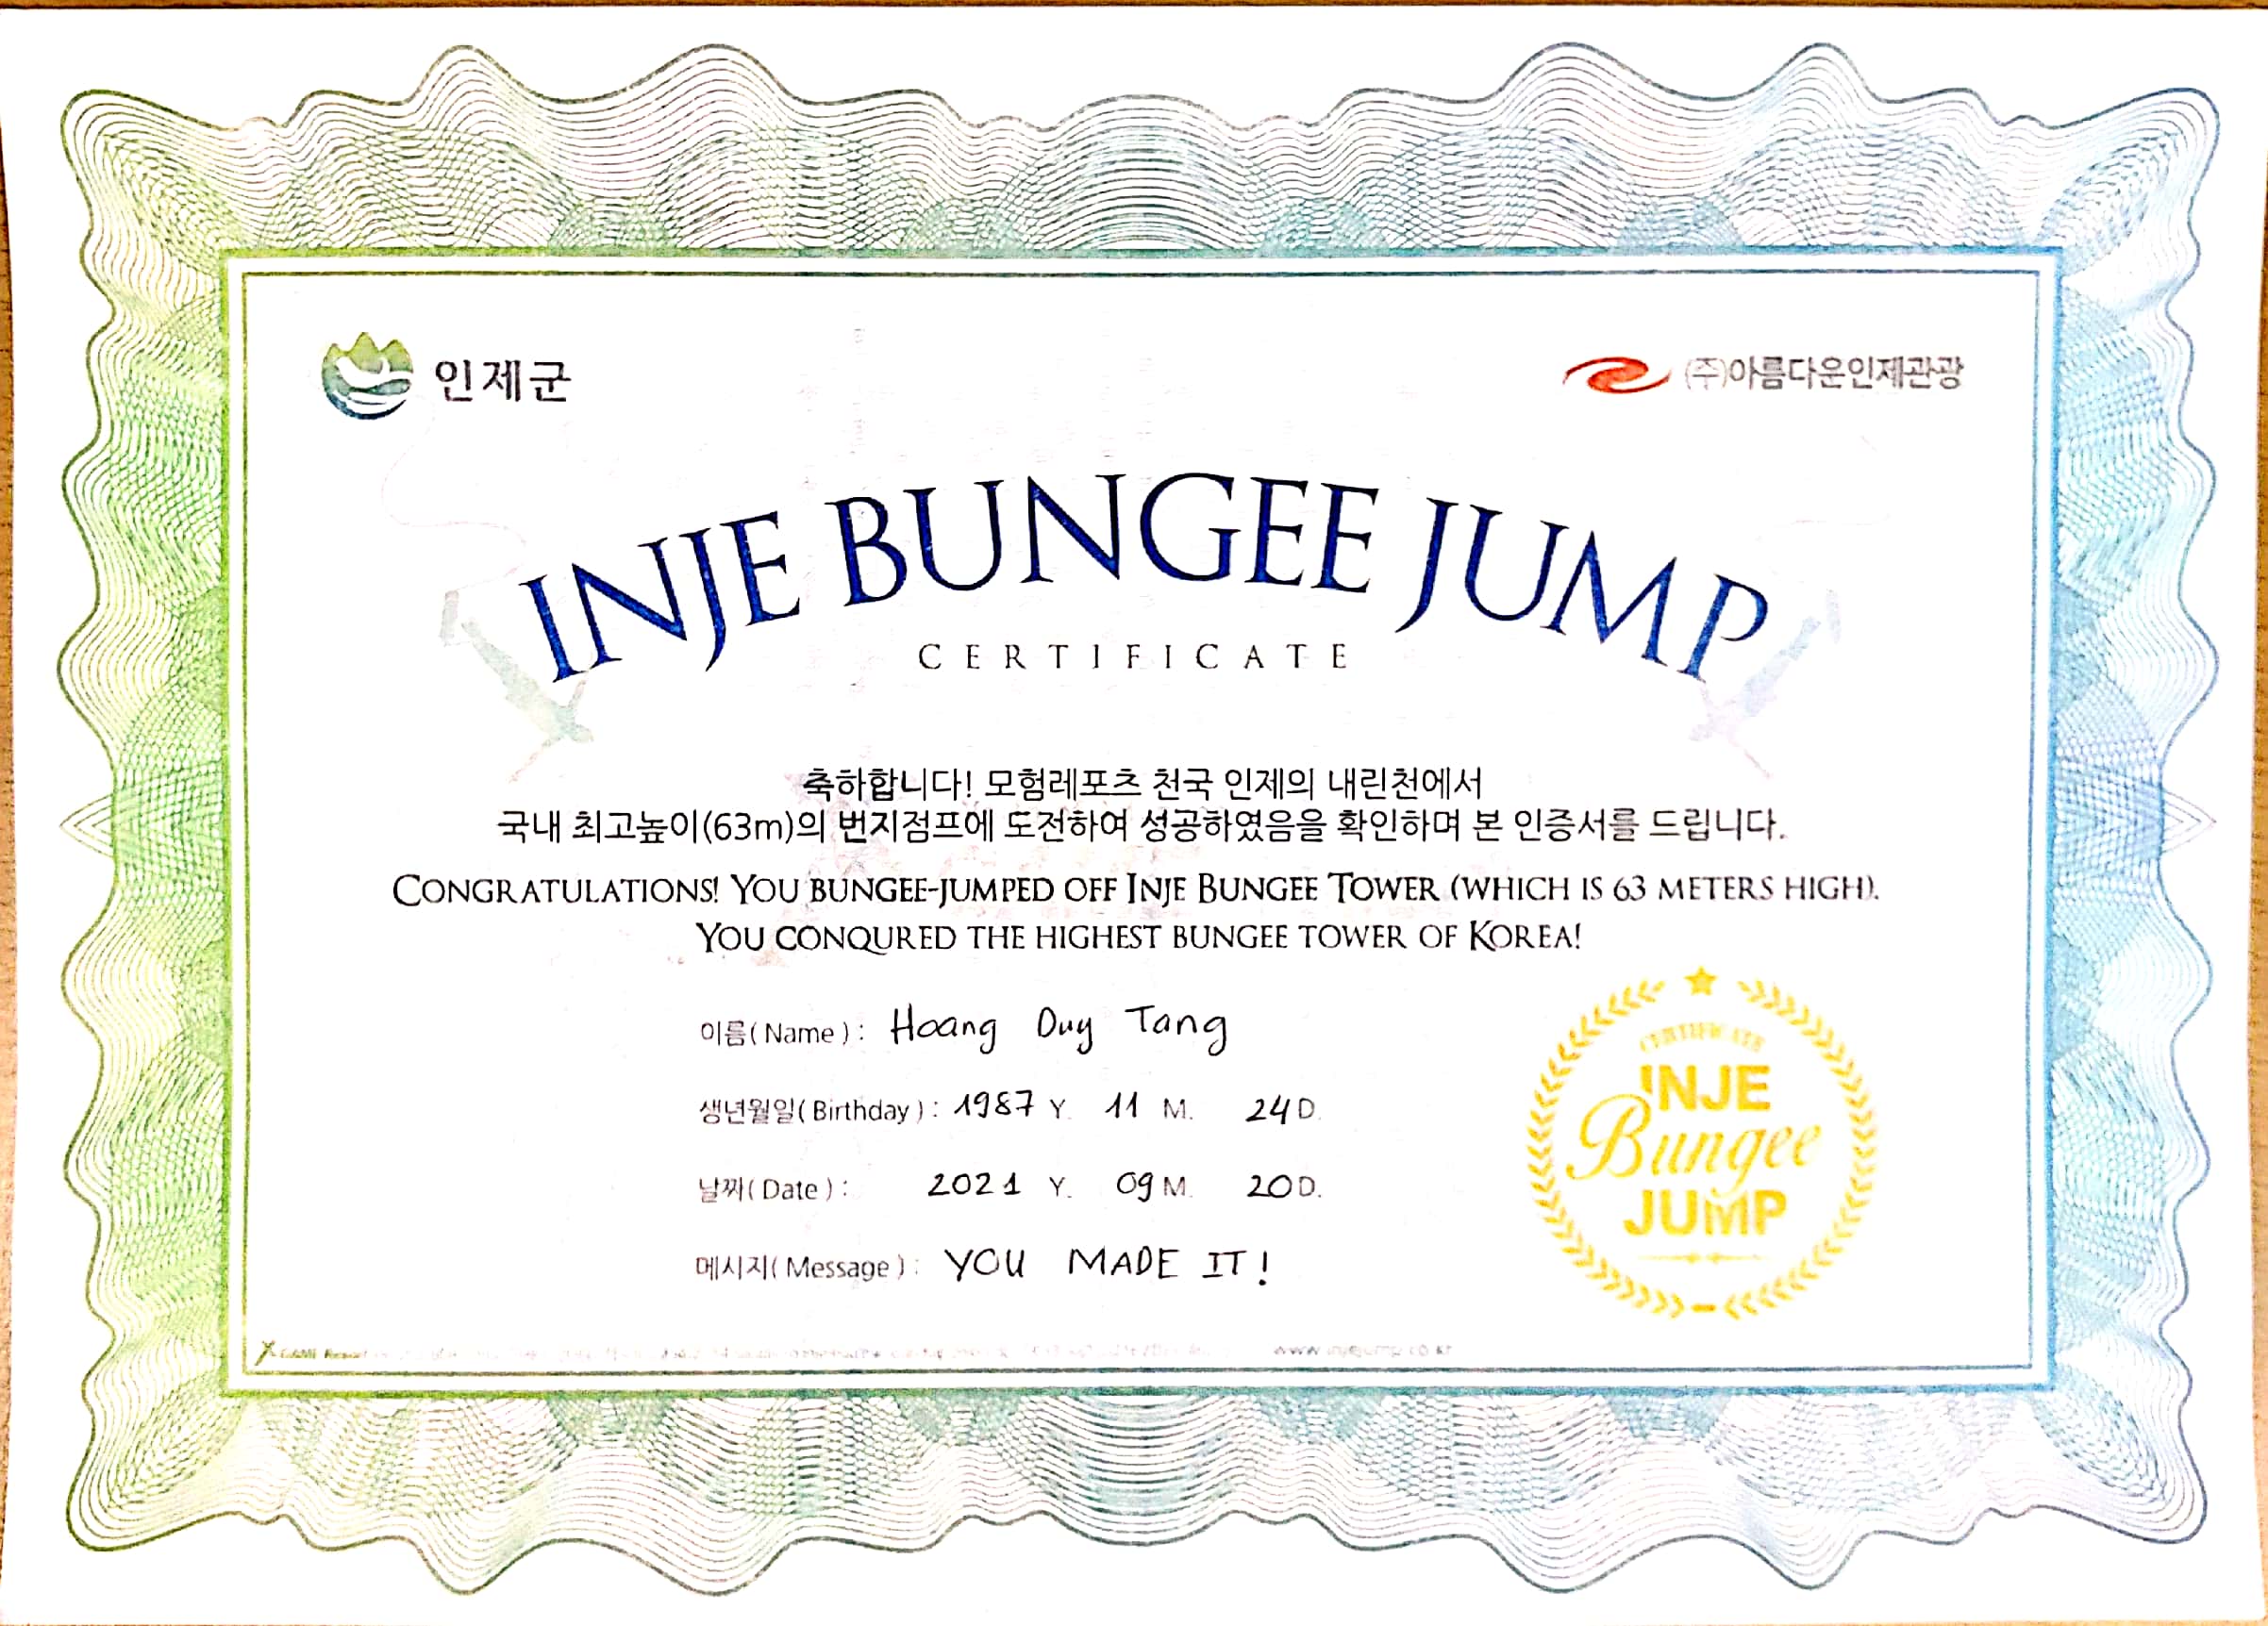 인제군
(주)아름다운인제관광
INJE BUNGEE JUMP
CERTIFICATE
축하합니다! 모험레포츠 천국 인제의 내린천에서
국내 최고높이(63m)의 번지점프에 도전하여 성공하였음을 확인하며 본 인증서를 드립니다.
CONGRATULATIONS! YOU BUNGEE-JUMPED OFF INJE BUNGEE TOWER (WHICH IS 63 METERS HIGH).
YOU CONQURED THE HIGHEST BUNGEE TOWER OF KOREA!
이름(Name): Hoang Duy Tang
생년월일(Birthday): 1987 Y. 11 M. 24 D.
날짜(Date): 2021 Y. 09 M. 20 D.
메시지(Message): YOU MADE IT!
CERTIFICATE
INJE
Bungee
JUMP
www.injejump.co.kr